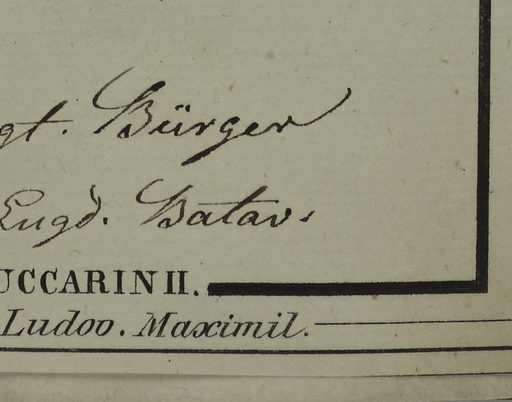 gt. Bürger
Lugd. Batav.
UCCARINII.
Ludov. Maximil.